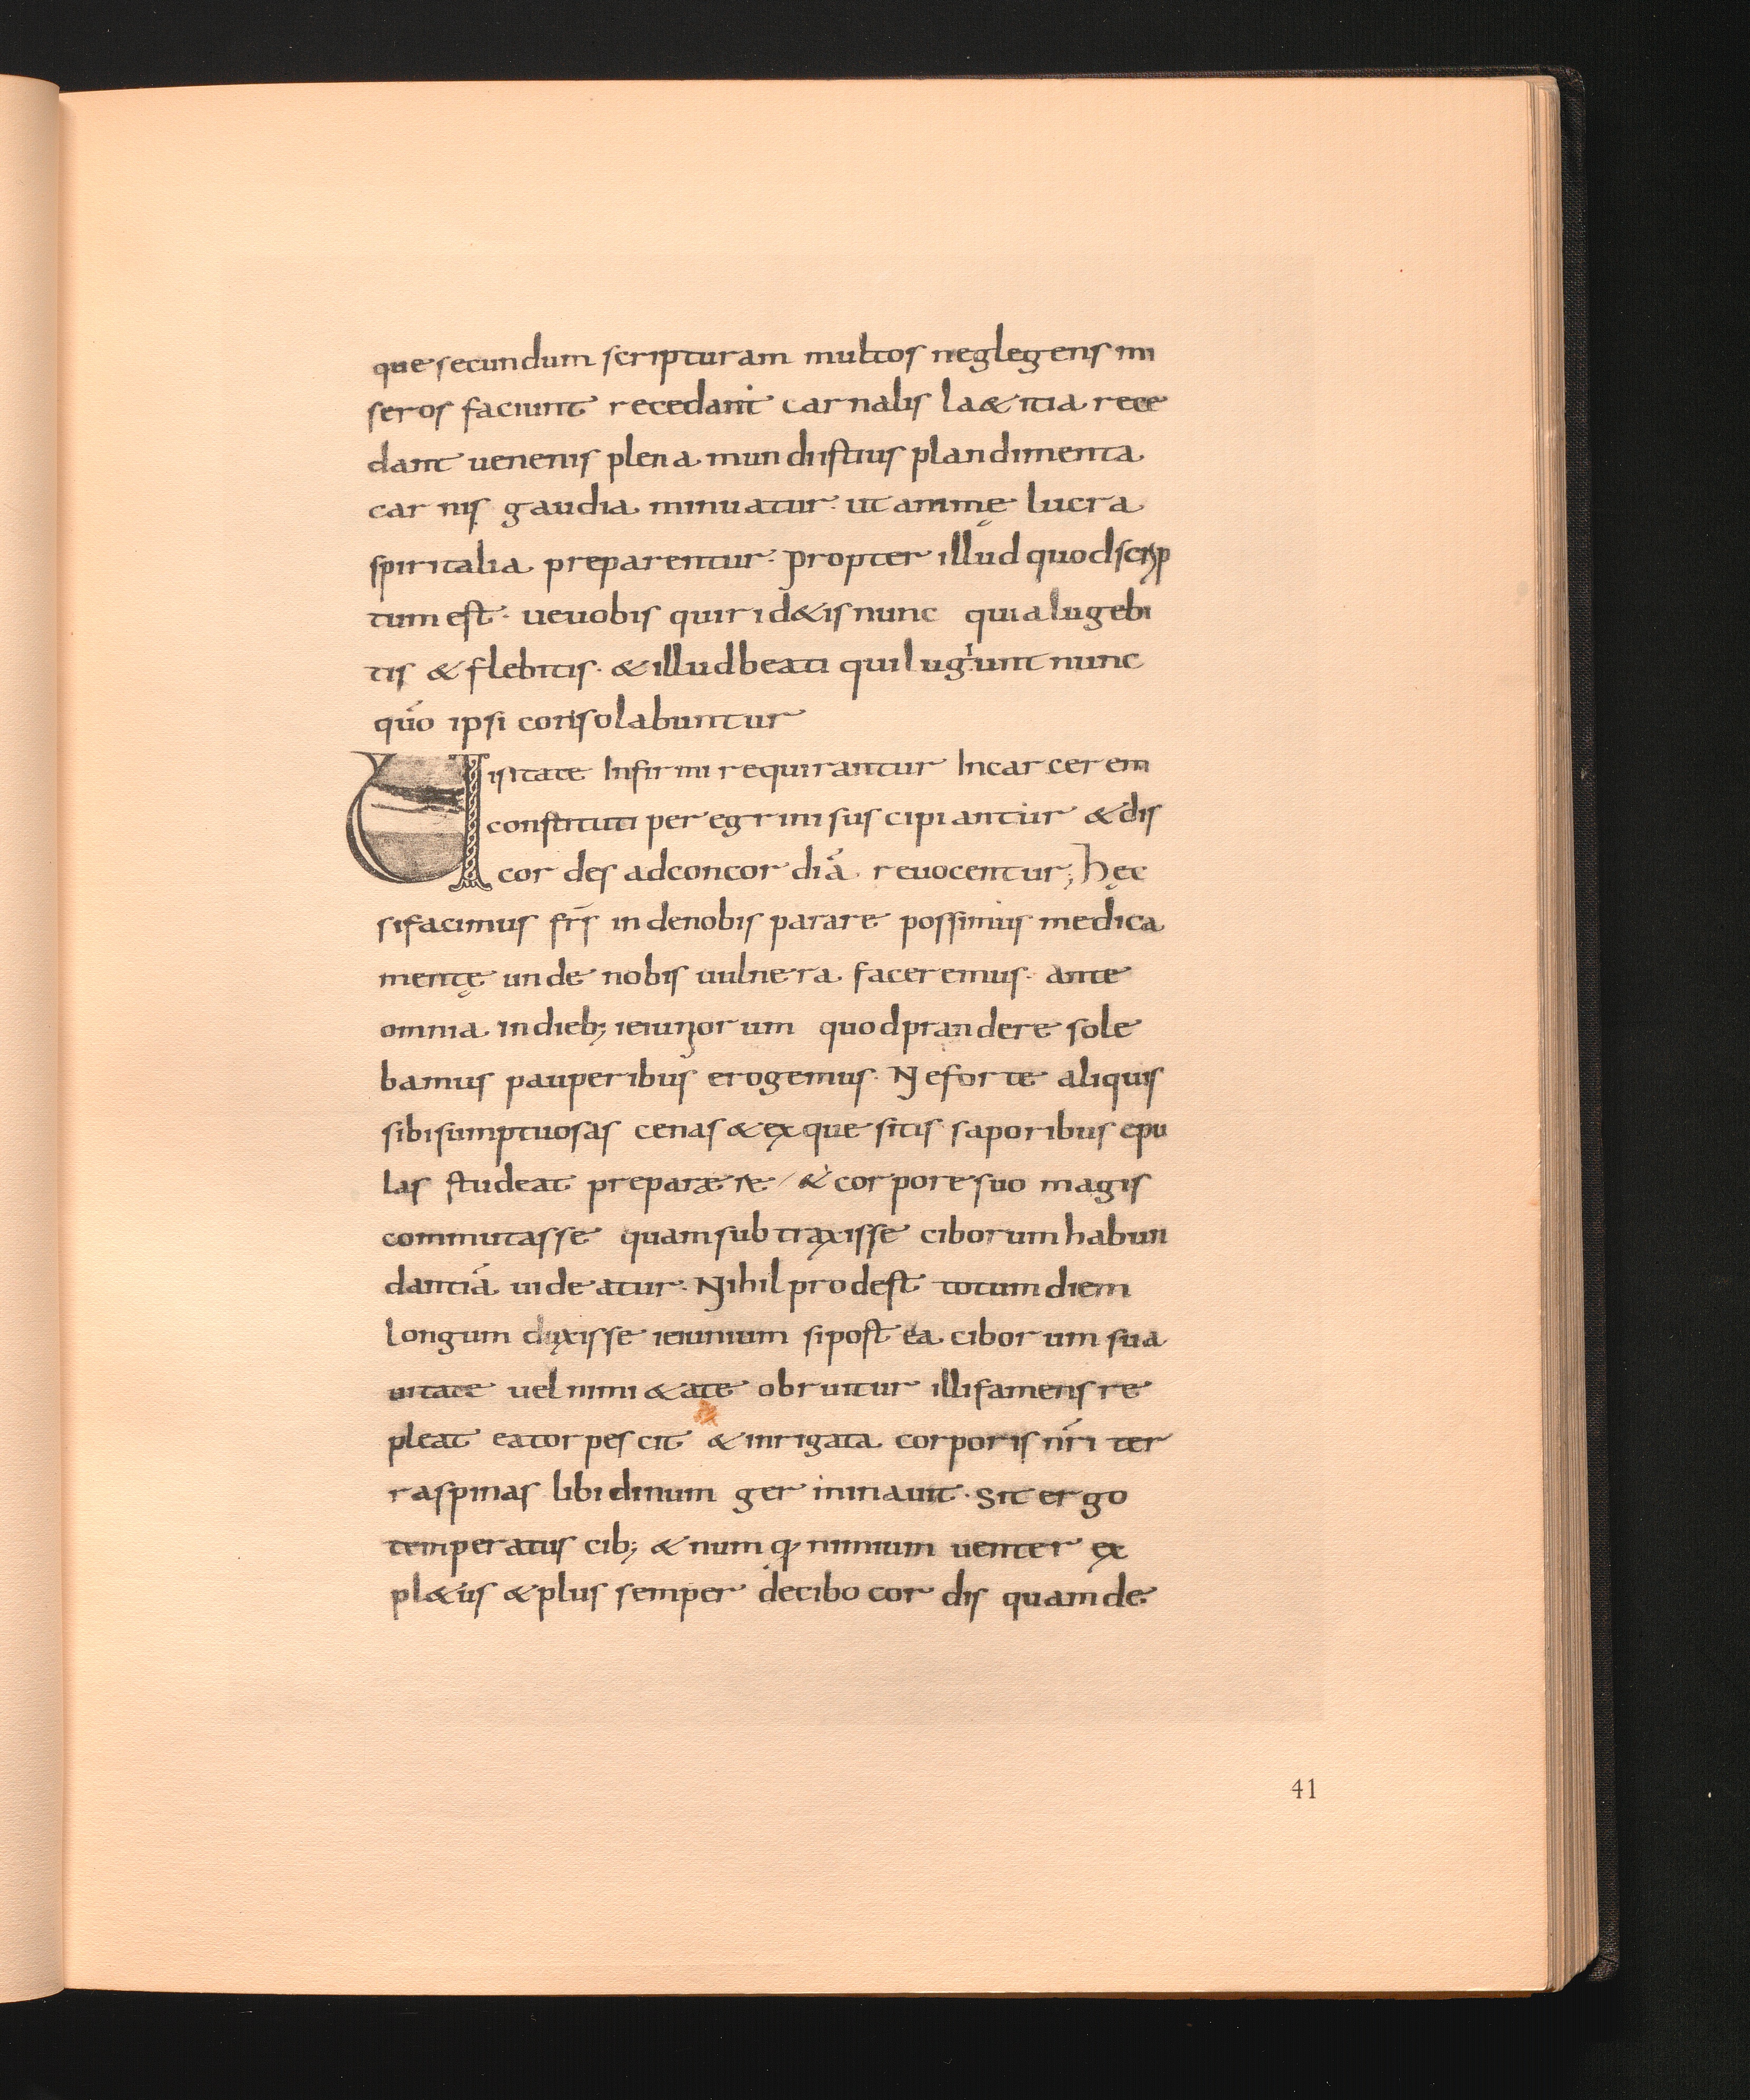 que secundum scripturam multos neglegens mi
seros faciunt recedant carnalis la&itia rece
dant uenenis plena mundi istius plandimenta
carnis gaudia minuatur· ut animę lucra
spiritalia preparentur· propter illud quod scrip
tum est· ueuobis qui rid&is nunc quia lugebi
tis & flebitis· & illud beati qui lugunt nunc
quo ipsi consolabuntur
Uisitate Infirmi requirantur Incarcerem
constituti peregrini suscipiantur & dis
cordes adconcordiā reuocentur; hęc
si facimus frs̄ inde nobis parare possimus medica
mentę unde nobis uulnera faceremus· ante
omnia indieb; ieiuniorum quod prandere sole
bamus pauperibus erogemus· Ne forte aliquis
sibi sumptuosas cenas & exquesitis saporibus epu
las studeat preparare / & corpore suo magis
commutasse quam subtraxisse ciborum habun
dantiā uideatur· Nihil prodest totum diem
longum duxisse ieiunium si post ea ciborum sua
uitate uel nimi&ate obruitur illi samens re
pleat ea torpescit & inrigata corporis nr̄i ter
ra spinas libidinum germinauit· Sit ergo
temperatus cib; & numq· nimium uenter ex
pl&us & plus semper decibo cordis quam de
41